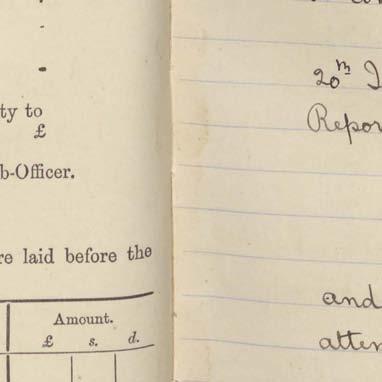 ty to
£
b-Officer.
re laid before the
Amount.
£ s. d.
20th
Repor
and
atten